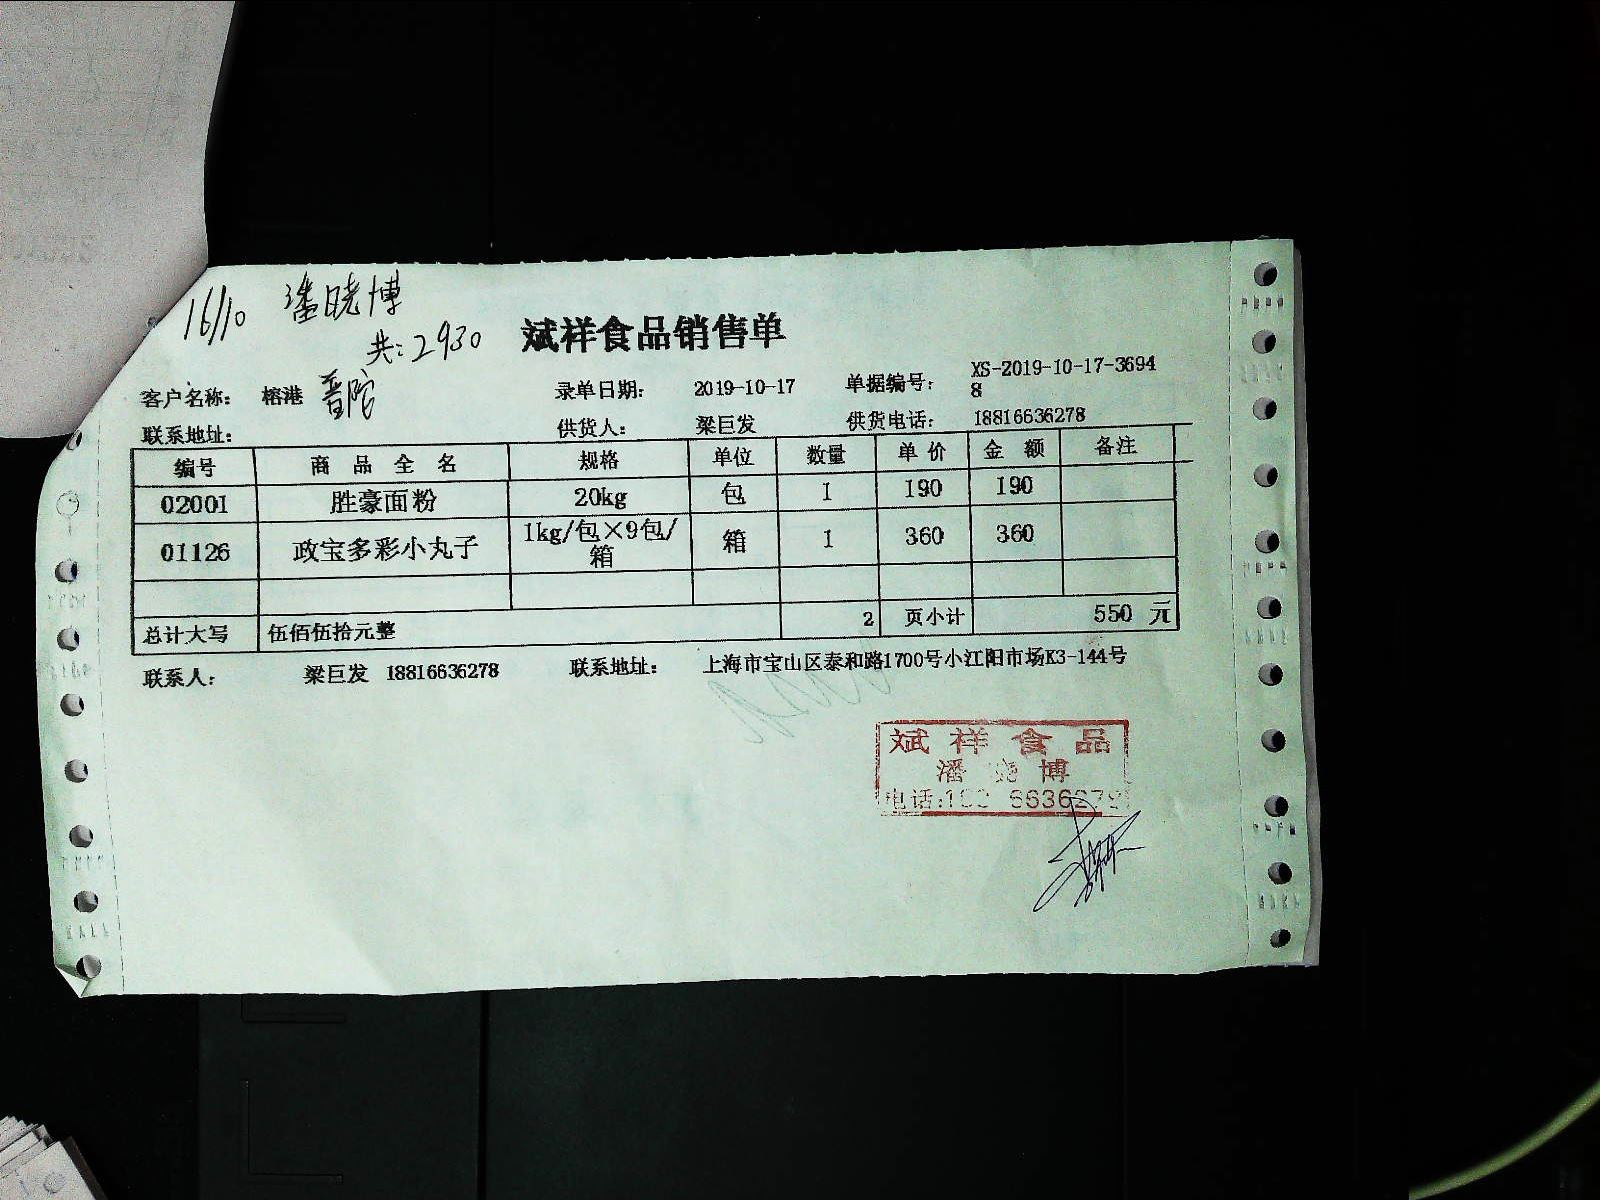 16/10 潘晓博
共:2930
斌祥食品销售单
客户名称: 榕港 普陀 录单日期: 2019-10-17 单据编号: XS-2019-10-17-3694
8
联系地址: 供货人: 梁巨发 供货电话: 18816636278
编号 商品全名 规格 单位 数量 单价 金额 备注
02001 胜豪面粉 20kg 包 1 190 190
01126 政宝多彩小丸子 1kg/包×9包/
箱 箱 1 360 360
总计大写 伍佰伍拾元整 2 页小计 550 元
联系人: 梁巨发 18816636278 联系地址: 上海市宝山区泰和路1700号小江阳市场K3-144号
斌祥食品
潘 博
电话:1 6636278